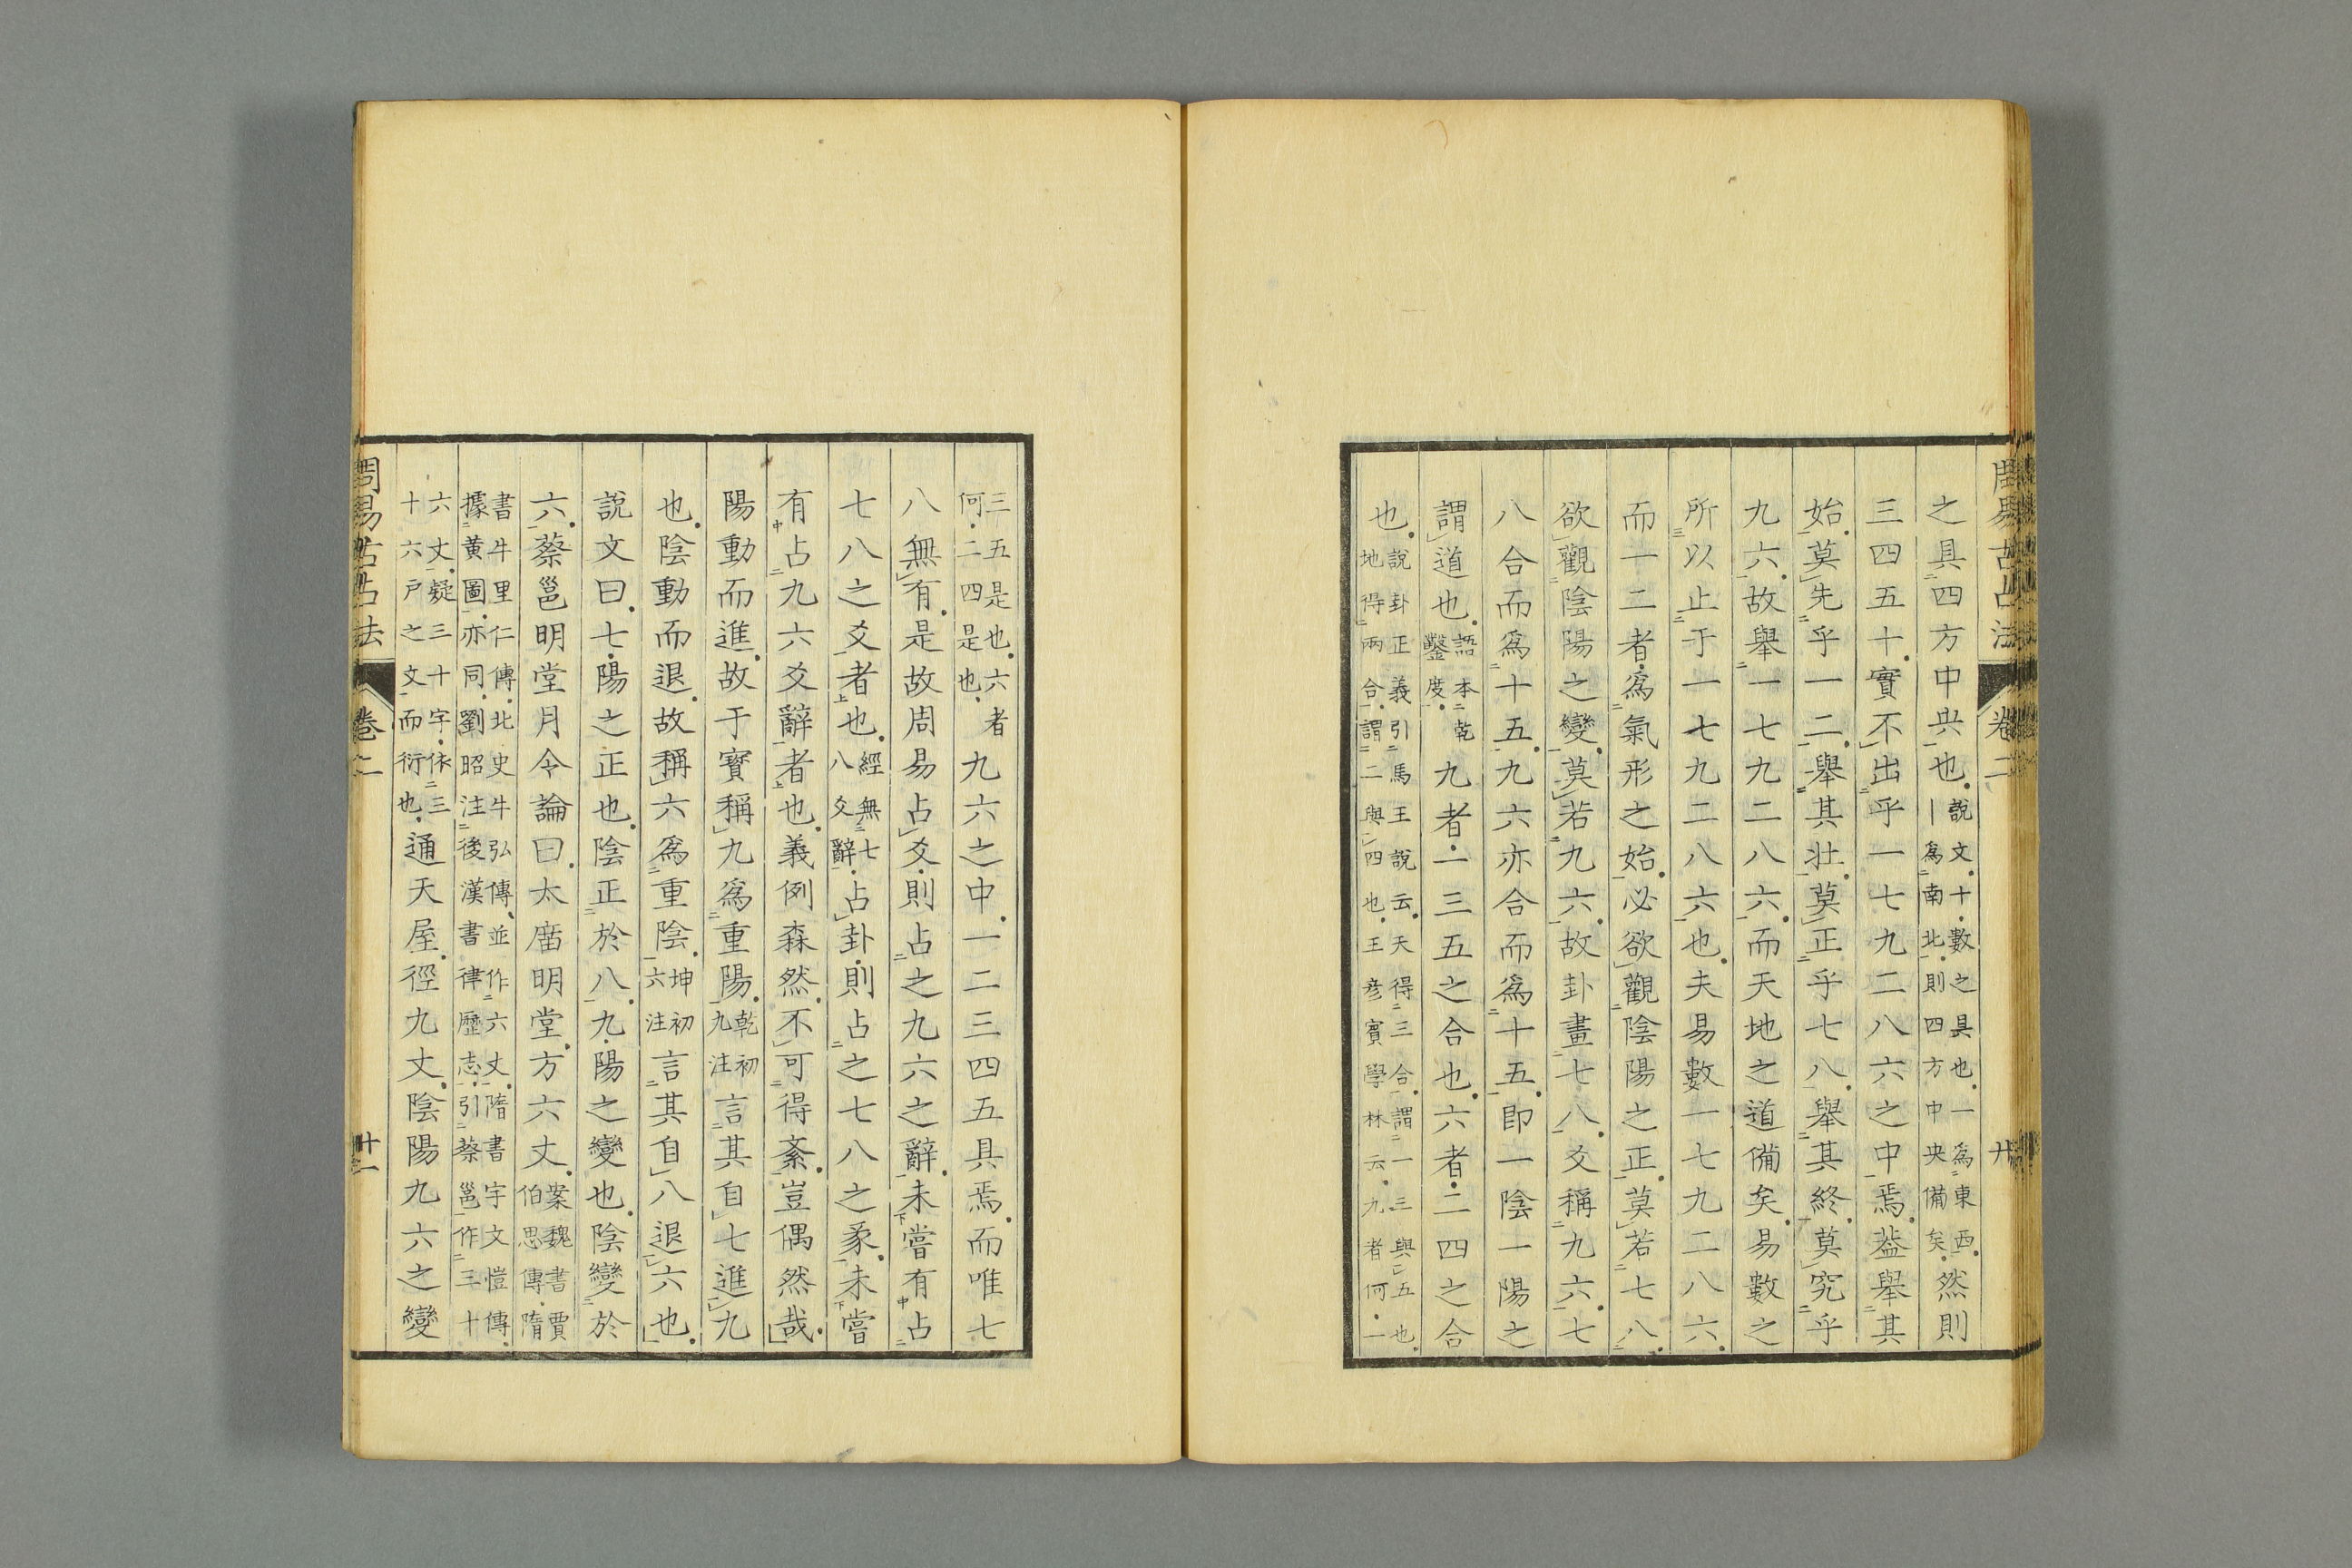 周易古占法 卷二 廿
之具四方中央也。說文。十。數之具也。一爲東西。丨爲南北。則四方中央備矣。然則
三四五十。實不出乎一七九二八六之中焉。蓋舉其
始。莫先乎一二。舉其壯。莫正乎七八。舉其終。莫究乎
九六。故舉一七九二八六。而天地之道備矣。易數之
所以止于一七九二八六也。夫易數一七九二八六。
而一二者。爲氣形之始。必欲觀陰陽之正。莫若七八。
欲觀陰陽之變。莫若九六。故卦畫七八。爻稱九六。七
八合而爲十五。九六亦合而爲十五。即一陰一陽之
謂道也。語本乾鑿度。九者。一三五之合也。六者。二四之合
也。說卦正義引馬王說云。天得三合。謂一三與五也。地得兩合。謂二與四也。王彥賓學林云。九者何。一
三五是也。六者何。二四是也。九六之中。一二三四五具焉。而唯七
八無有。是故周易占爻。則占之九六之辭。未嘗有占
七八之爻者也。經無七八爻辭。占卦。則占之七八之彖。未嘗
有占九六爻辭者也。義例森然。不可得紊。豈偶然哉。
陽動而進。故于寳稱九爲重陽。乾初九注言其自七進九
也。陰動而退。故稱六爲重陰。坤初六注言其自八退六也。
說文曰。七。陽之正也。陰正於八。九。陽之變也。陰變於
六。蔡邕明堂月令論曰。太廟明堂。方六丈。案魏書賈伯思傳。隋
書牛里仁傳。北史牛弘傳。並作六丈。隋書宇文愷傳。據黃圖。亦同。劉昭注後漢書律歷志。引蔡邕作三十
六丈。疑三十字。依三十六戶之文而衍也。通天屋。徑九丈。陰陽九六之變
周易古占法 卷二 廿一